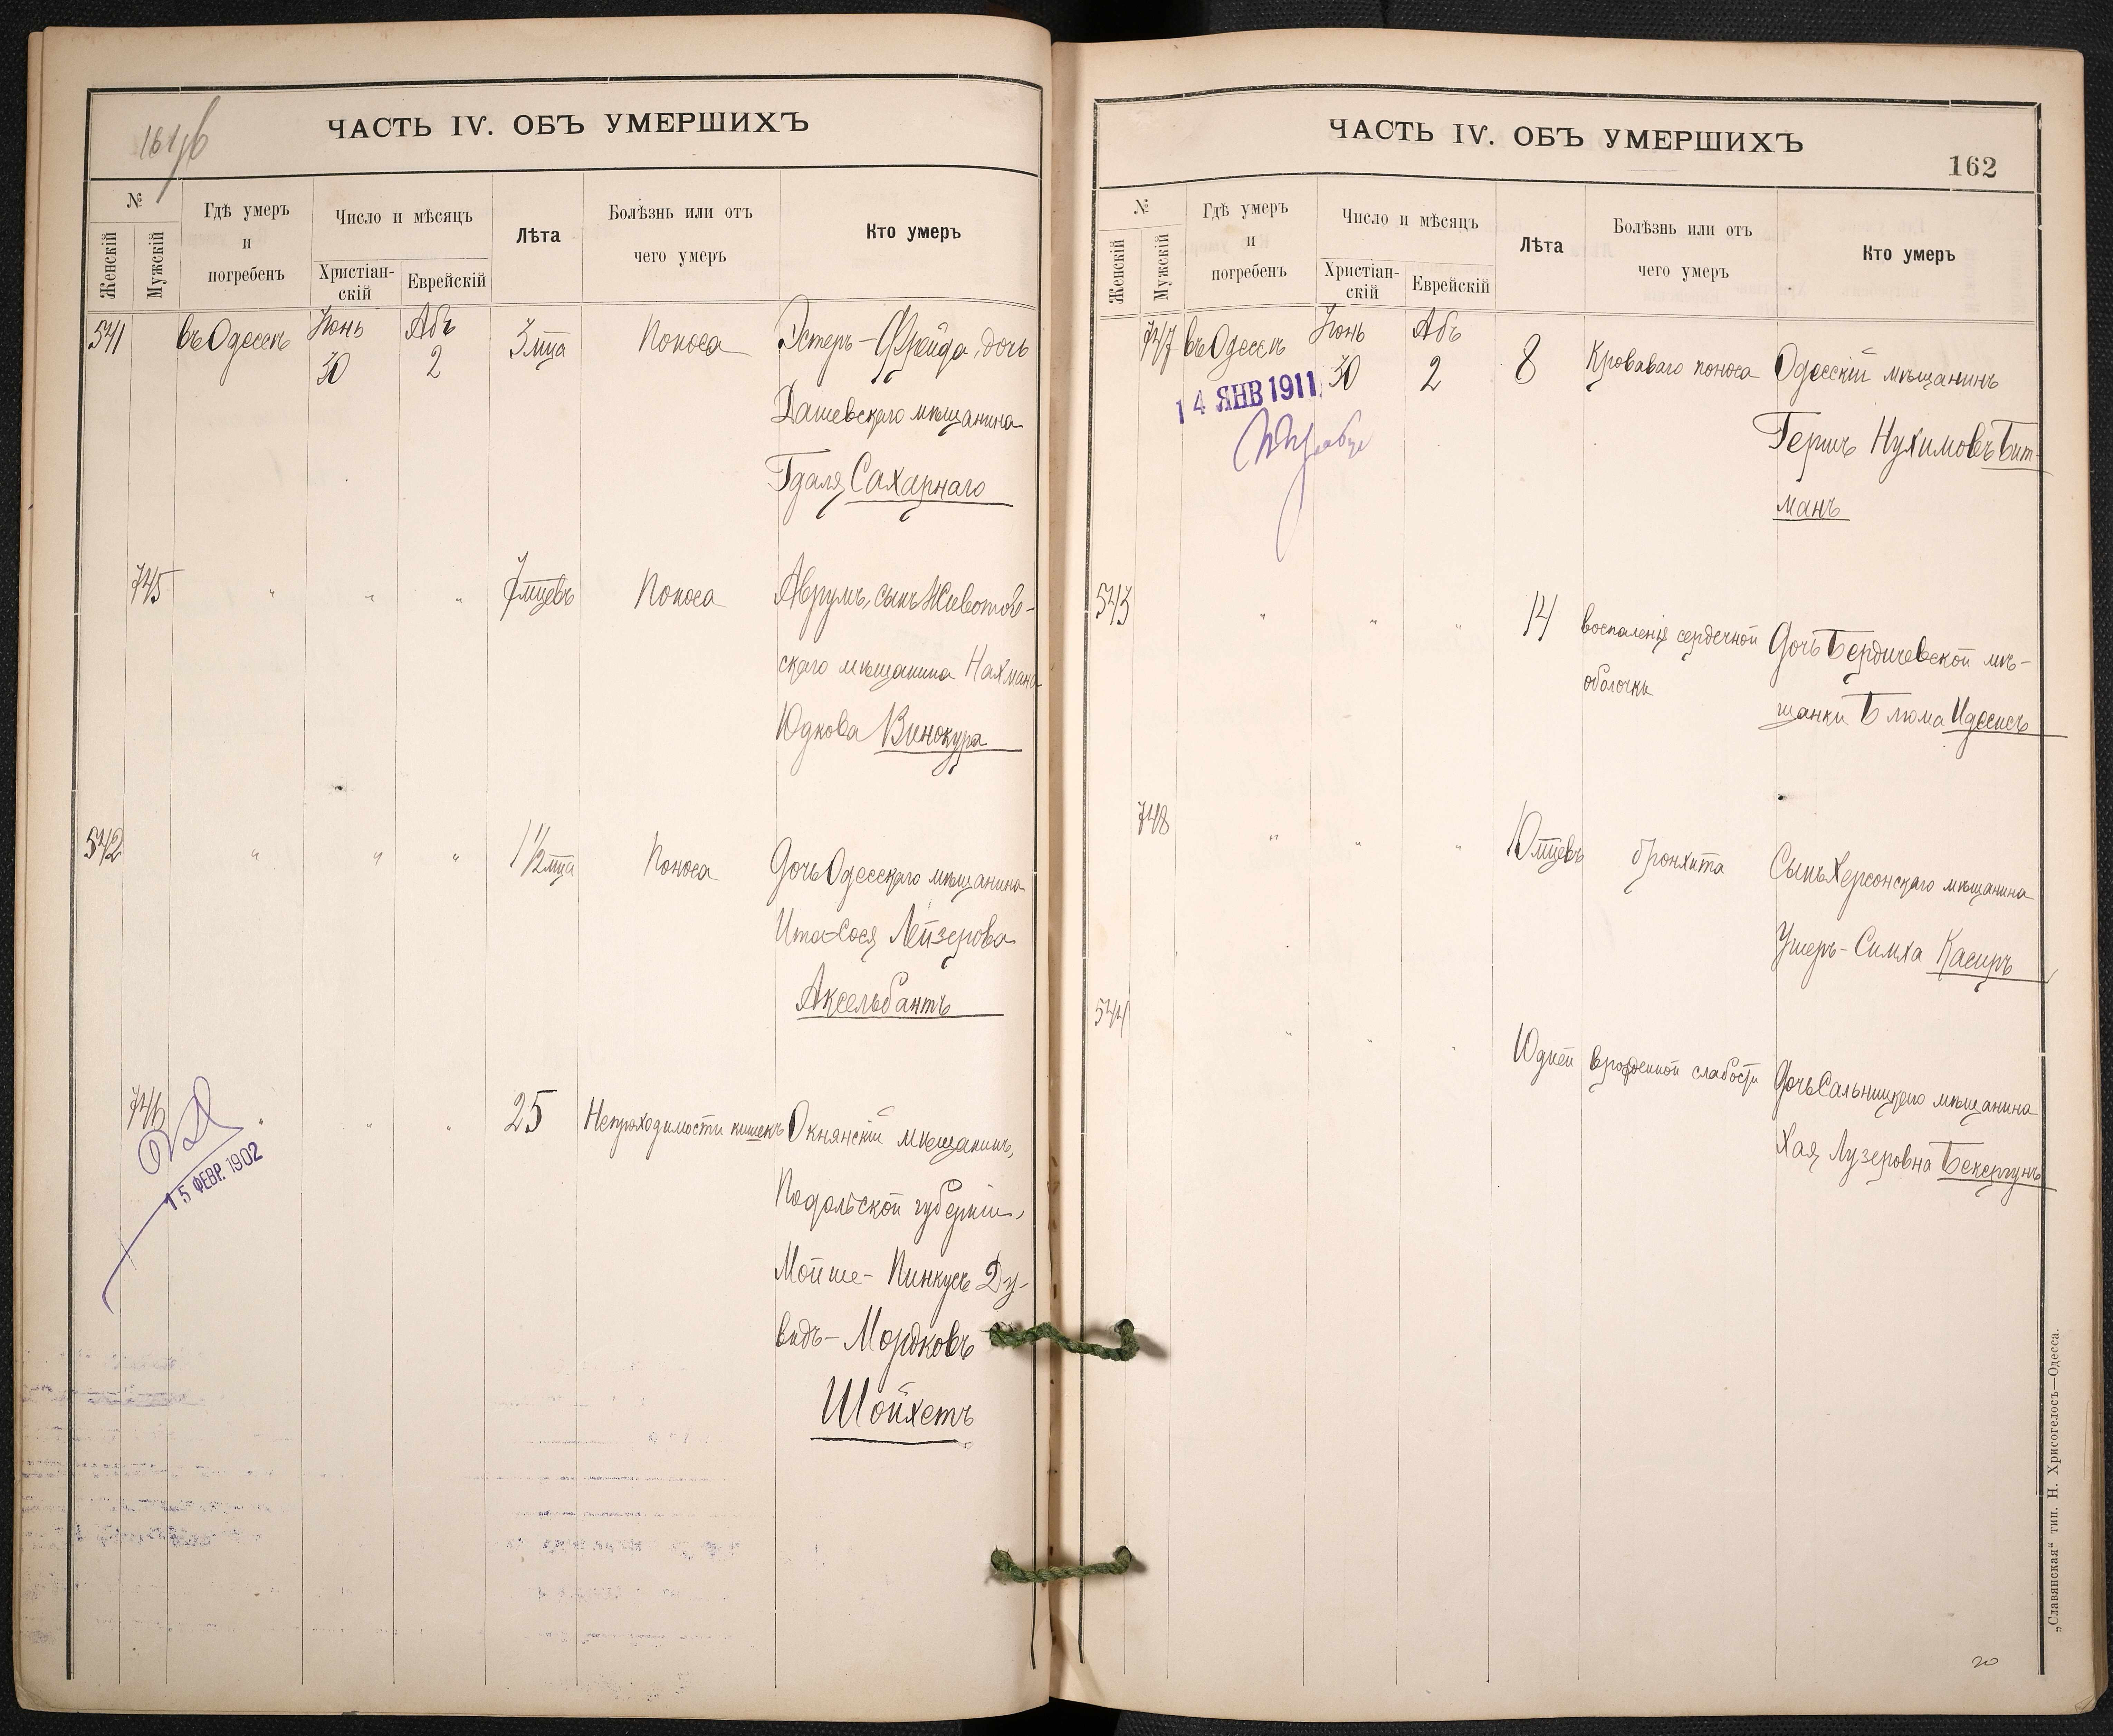 161 об
ЧАСТЬ IV. ОБЪ УМЕРШИХЪ
№
Женскій
Мужскій
Гдѣ умеръ
и
погребенъ
Число и мѣсяцъ
Христіан-
скій
Еврейскій
Лѣта
Болѣзнь или отъ
чего умеръ
Кто умеръ
541 въ Одессѣ Іюнь Абъ 3 мца Поноса Эстеръ-Фрейда, дочь
30 2
Дашевскаго мѣщанина
Гдаля Сахарнаго
745 " " " 7 мцевъ Поноса Аврумъ, сынъ Животов-
скаго мѣщанина Нахмана
Юдкова Винокура
542 " " " 1 1/2 мца Поноса Дочь Одесскаго мѣщанина
Ита-Сося Лейзерова
Аксельбантъ
746 " " " 25 Непроходимости кишекъ Окнянскій мѣщанинъ,
Подольской губерніи,
Мойше-Пинкусъ Ду-
видъ-Мордковъ
Шойхетъ
15 ФЕВР. 1902
ЧАСТЬ IV. ОБЪ УМЕРШИХЪ
162
№
Женскій
Мужскій
Гдѣ умеръ
и
погребенъ
Число и мѣсяцъ
Христіан-
скій
Еврейскій
Лѣта
Болѣзнь или отъ
чего умеръ
Кто умеръ
747 въ Одессѣ Іюнь Абъ 8 Кроваваго поноса Одесскій мѣщанинъ
30 2
14 ЯНВ 1911
Гершъ Нухимовъ Бит-
манъ
543 " " " 14 воспаленія сердечной Дочь Бердичевской мѣ-
оболочки
щанки Блюма Идесисъ
748 " " " 10 мцевъ бронхита Сынъ Херсонскаго мѣщанина
Ушеръ-Симха Касиръ
544 " " " 10 дней врожденной слабости Дочь Сальницкаго мѣщанина
Хая Лузеровна Бекергунъ
20
„Славянская“ тип. Н. Хрисогелосъ—Одесса.